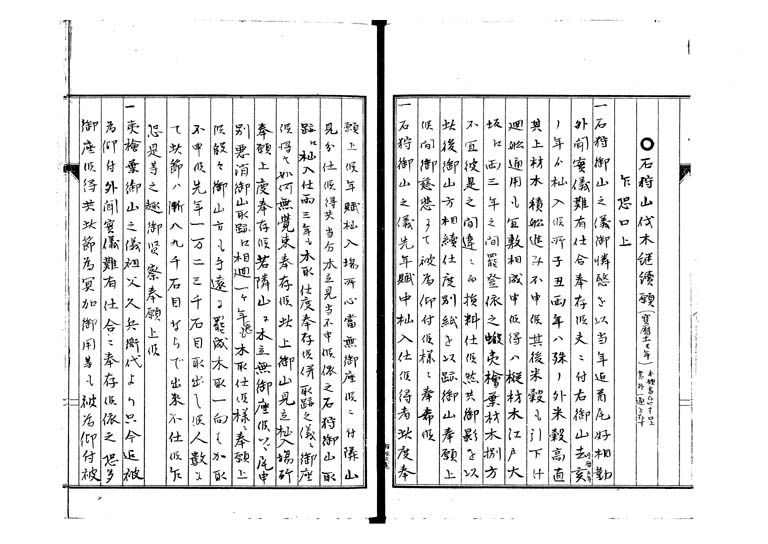 〇石狩山伐木継続願(宝暦十一巳年)
乍恐口上
一石狩御山之儀御憐愍を以当年迄首尾好相勤
外聞実儀難有仕合奉存候夫ニ付右御山去亥
年ゟ杣入候所子丑両年ハ殊ノ外米穀高直
其上材木積舩進み不申候其後米穀も引下ケ
廻舩通用も宜敷相成申候得ハ椴材木江戸大
坂ニ両三年之間罷登依之蝦夷檜葉材木捌方
不宜彼是之間違ニ而損料仕候然共御影を以
此後御山方相続仕度別紙を以跡御山奉願上
候間御慈悲ニて被為仰付候様ニ奉希候
一石狩御山之儀先年賦申杣入仕候得者此度奉
願上候年賦杣入場所心当無御座候ニ付隣山
見分仕候得共当分木立見当不申候依之石狩御山取
跡ニ杣入仕両三年も木取仕度奉存候併取跡之儀ニ御座
候得ハ如何無覚束奉存候此上御山見立杣入場所
奉願上度奉存候若隣山ニ木立無御座候ハヽ尾申
別悪消御山取跡ニ相廻一ヶ年宛木取仕候様ニ奉願上
候段々御山方も手遠ニ罷成木取一向もか取
不申候先年一万二三千石目取出し候人数ニ
て此節ハ漸八九千石目ならで出来不仕候乍
恐是等之趣御賢察奉願上候
一夷檜葉御山之儀祖父久兵衛代より只今迄被
為仰付外聞実儀難有仕合ニ奉存候依之恐多
御座候得共此節為冥加御用等も被為仰付被